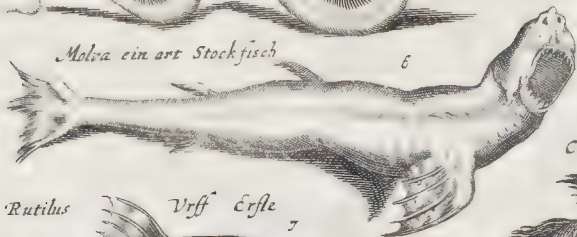 Molva ein art Stockfisch
6
Rutilus Vrff Erfle
7